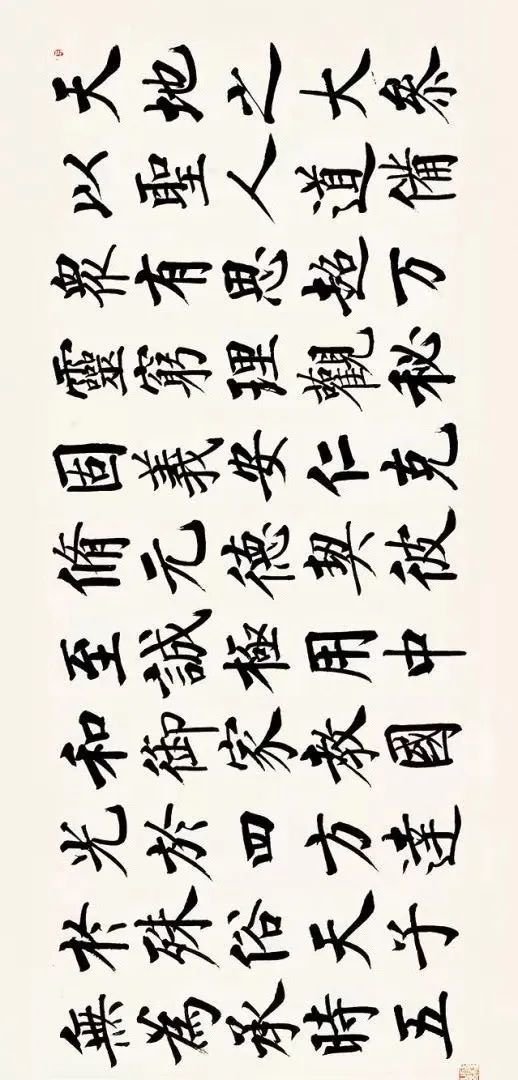 天地之大叅
以聖人道備
眾有思超万
靈窮理觀秘
固義安仁克
脩元德契彼
至誠極用中
和御家教國
光於四方達
於殊俗天子
無為承時五